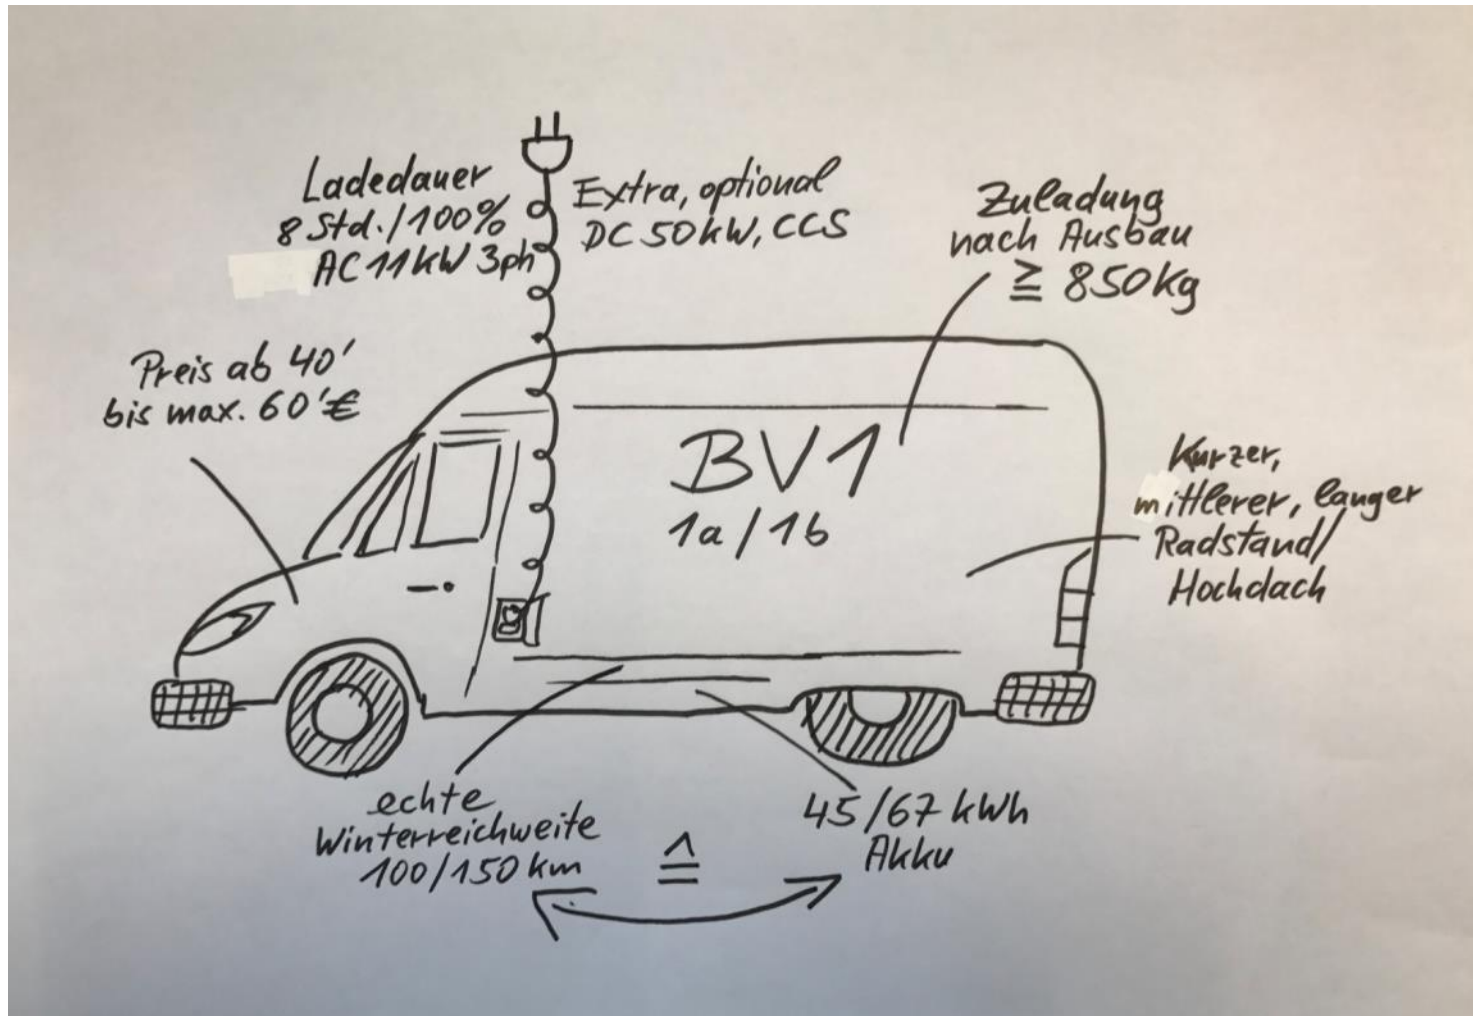 Ladedauer
8 Std./100%
AC 11kW 3ph
Extra, optional
DC 50kW, CCS
Zuladung
nach Ausbau
≧ 850kg
Preis ab 40'
bis max. 60'€
BV1
1a/1b
Kurzer,
mittlerer, langer
Radstand/
Hochdach
echte
Winterreichweite
100/150 km
≙
45/67 kWh
Akku